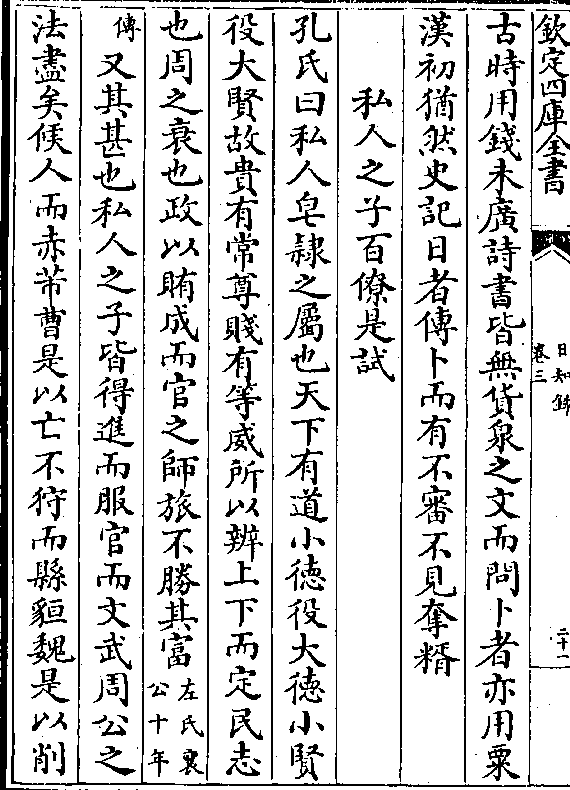 欽定四庫全書
日知錄
卷三
二十一
古時用錢未廣詩書皆無貨泉之文而問卜者亦用粟
漢初猶然史記日者傳卜而有不審不見奪糈
私人之子百僚是試
孔氏曰私人皂隷之屬也天下有道小德役大德小賢
役大賢故貴有常尊賤有等威所以辨上下而定民志
也周之衰也政以賄成而官之師旅不勝其富左氏襄公十年
傳又其甚也私人之子皆得進而服官而文武周公之
法盡矣候人而赤芾曹是以亡不狩而縣貆魏是以削